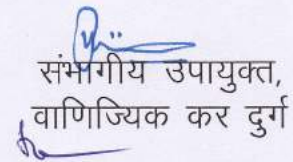 संभागीय उपायुक्त,
वाणिज्यिक कर दुर्ग